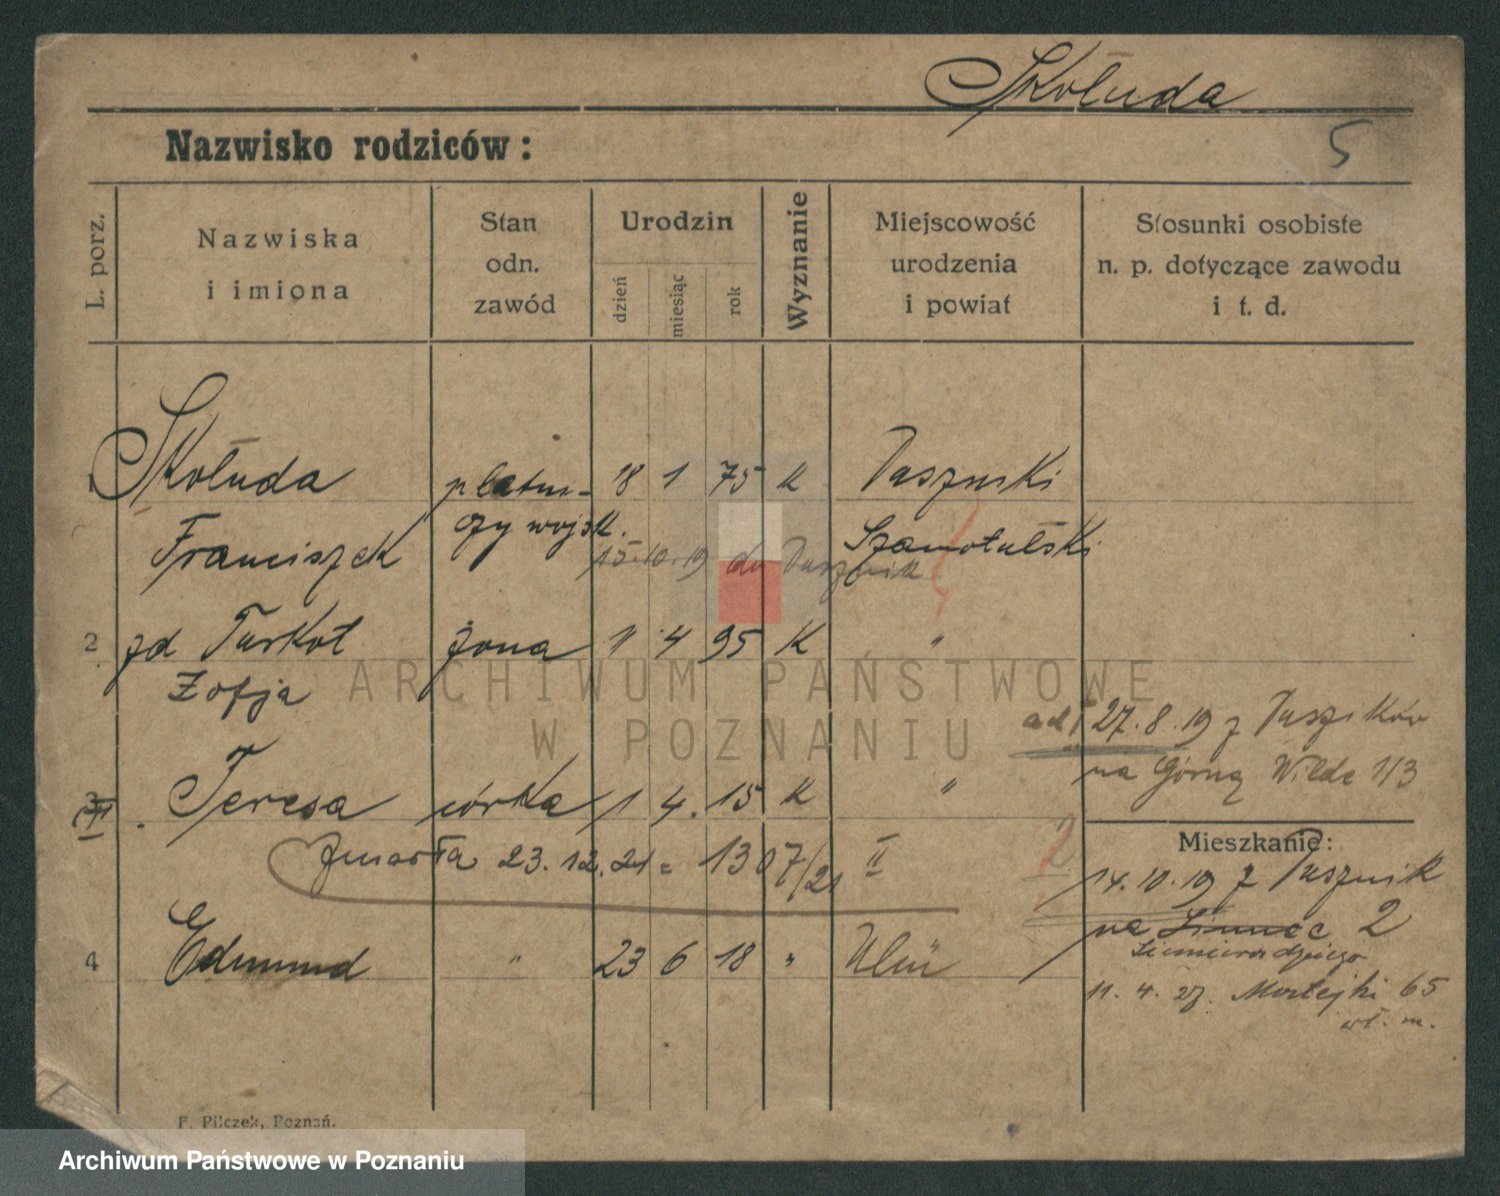 Skołuda
Nazwisko rodziców:
5
L. porz.
Nazwiska
i imiona
Stan
odn.
zawód
Urodzin
dzień
miesiąc
rok
Wyznanie
Miejscowość
urodzenia
i powiat
Stosunki osobiste
n. p. dotyczące zawodu
i t. d.
1 Skołuda płatni- 18 1 75 K
czy wojsk. Szamotulski
Franciszek 15.10.19 do Dusznik
2 zd Turkot żona 1 4 95 K "
Zofja
27.8.19 z
na Górną Wilde 113
3 Teresa córka 1 4. 15 K "
Zmarła 23.12.21 = 1307/21 II
Mieszkanie:
14.10.19 z Dusznik
na 2
4 Edmund " 23 6 18 "
Siemieradzkiego
11. 4. 27. Matejki 65
wł. m.
F. Pilczek, Poznań.
ARCHIWUM PAŃSTWOWE
W POZNANIU
Archiwum Państwowe w Poznaniu